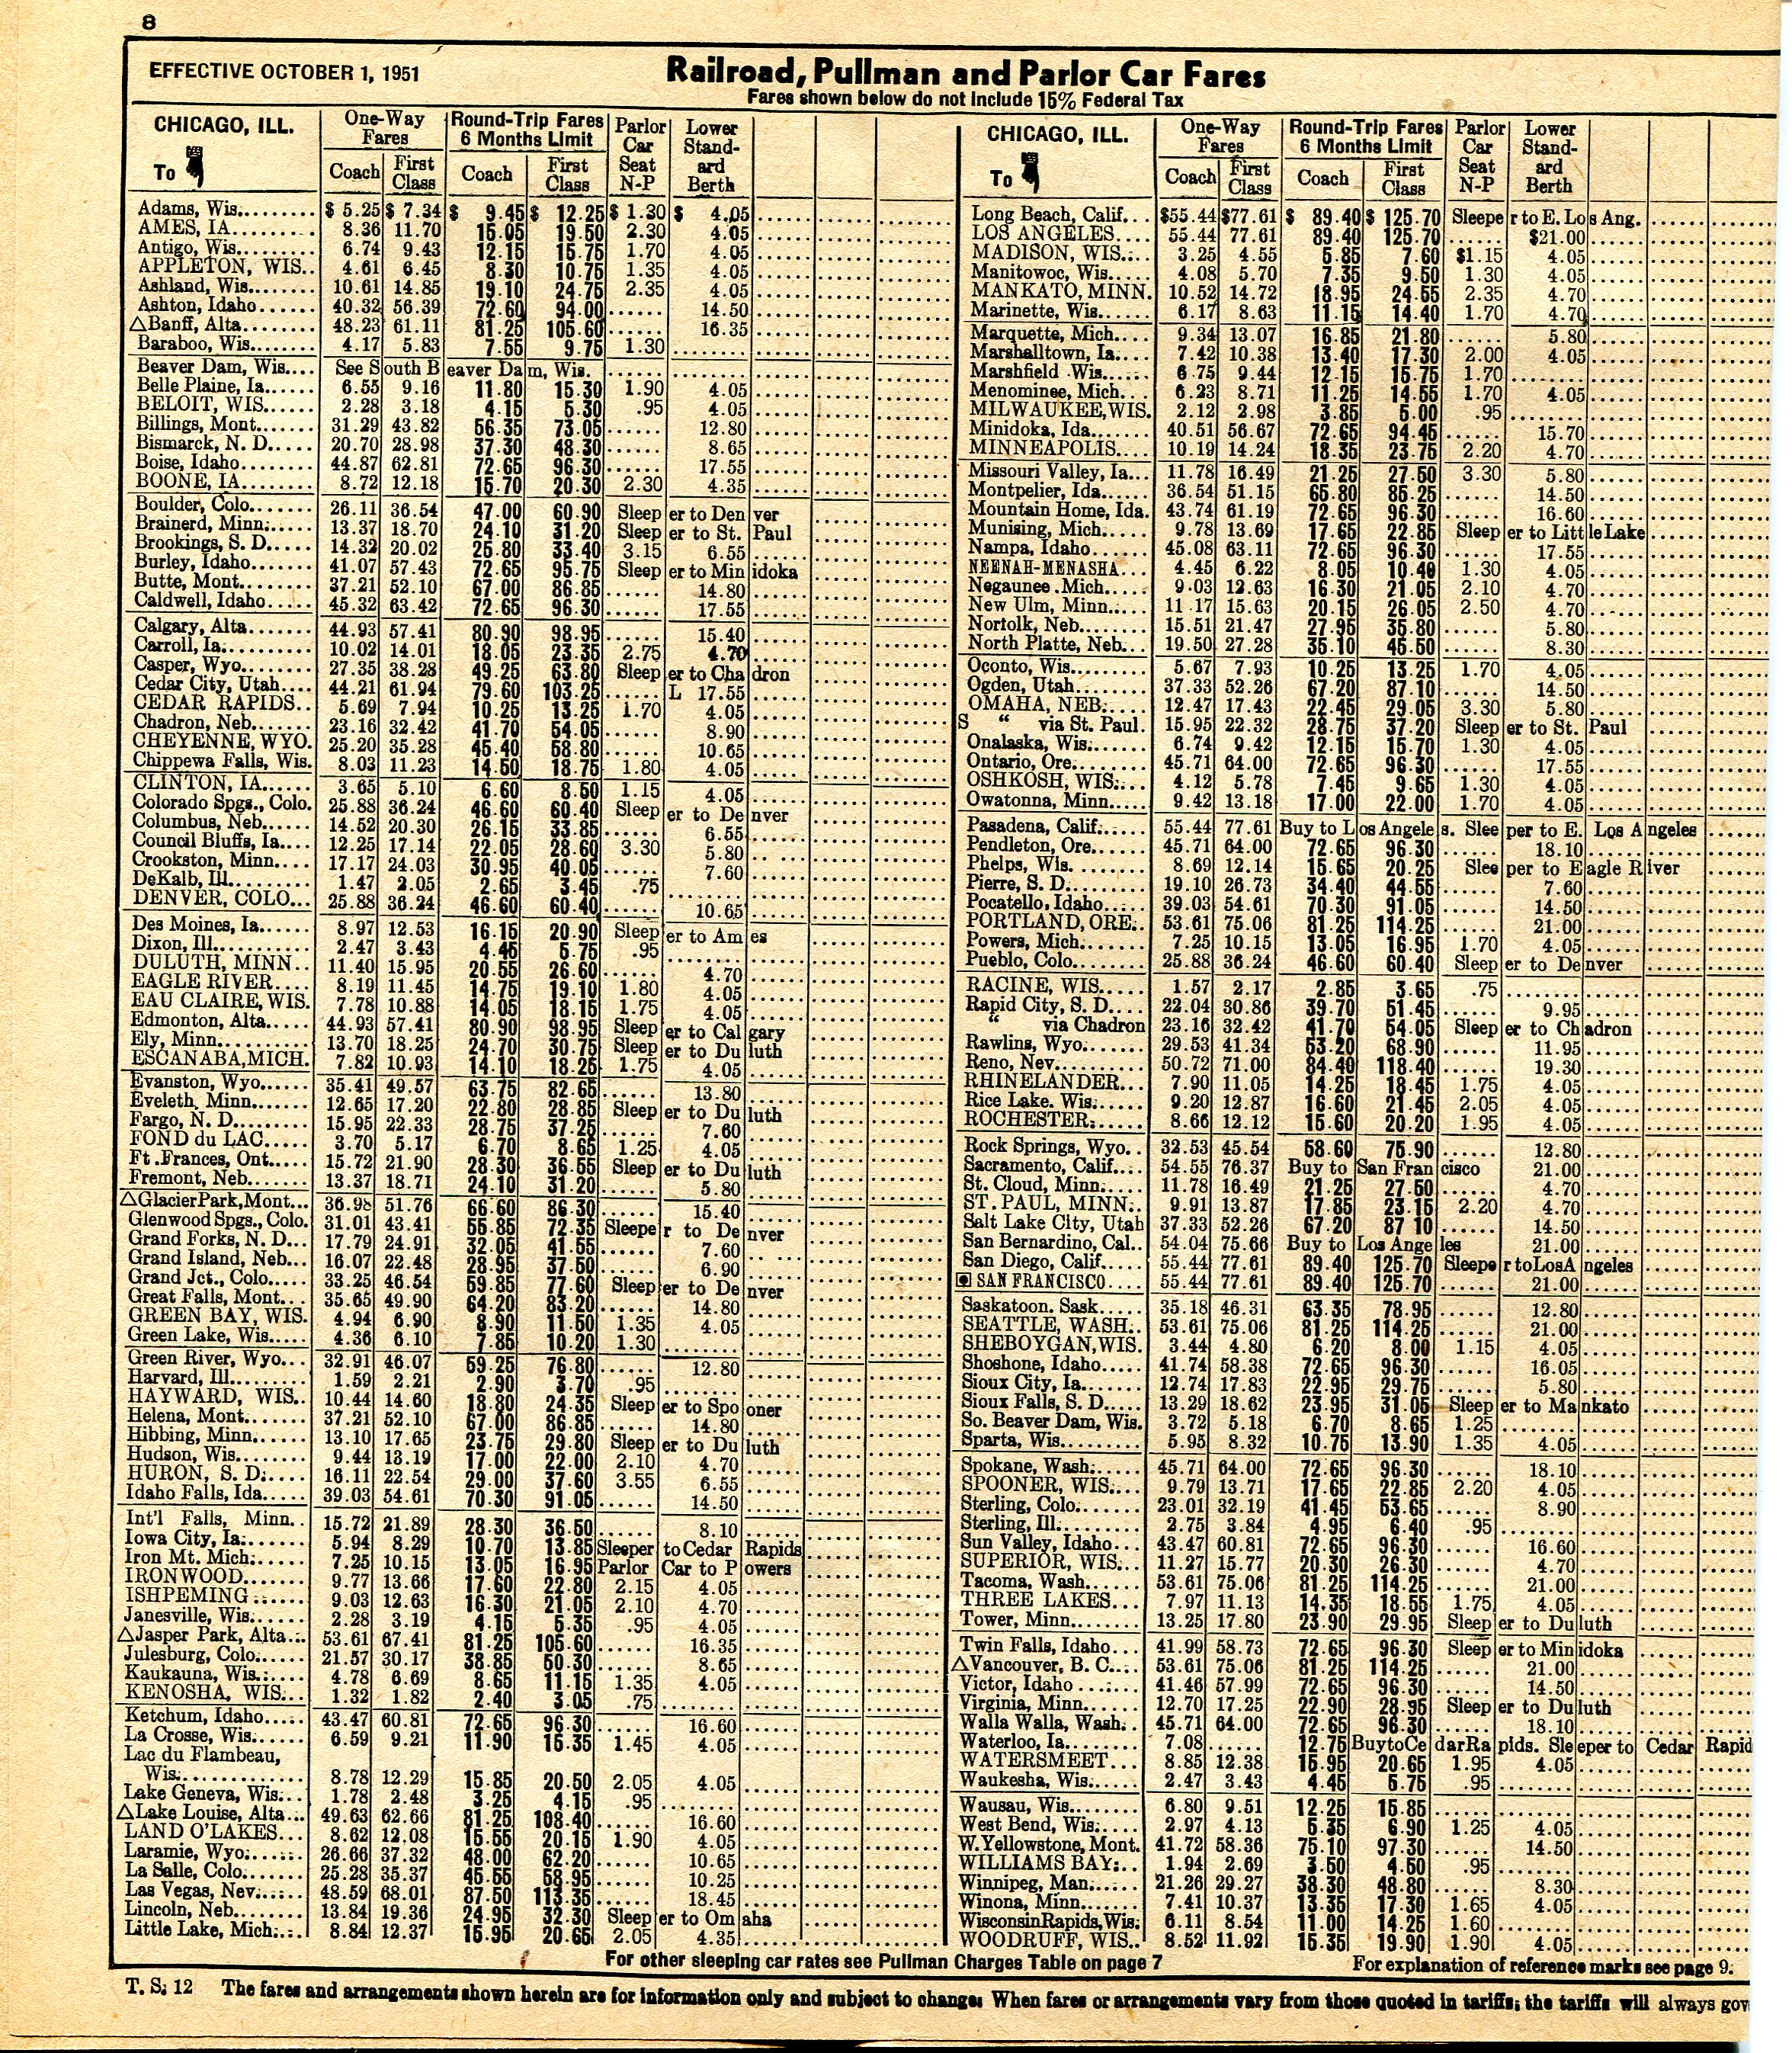 8
EFFECTIVE OCTOBER 1, 1951
Railroad, Pullman and Parlor Car Fares
Fares shown below do not include 15% Federal Tax
CHICAGO, ILL. To
One-Way Fares
Round-Trip Fares 6 Months Limit
Parlor Car Seat N-P
Lower Standard Berth
Coach First Class Coach First Class
Adams, Wis........ $ 5.25 $ 7.34 $ 9.45 $ 12.25 $ 1.30 $ 4.05
AMES, IA......... 8.36 11.70 15.05 19.50 2.30 4.05
Antigo, Wis........ 6.74 9.43 12.15 15.75 1.70 4.05
APPLETON, WIS.. 4.61 6.45 8.30 10.75 1.35 4.05
Ashland, Wis....... 10.61 14.85 19.10 24.75 2.35 4.05
Ashton, Idaho...... 40.32 56.39 72.60 94.00 ...... 14.50
△Banff, Alta........ 48.23 61.11 81.25 105.60 ...... 16.35
Baraboo, Wis....... 4.17 5.83 7.55 9.75 1.30 ......
Beaver Dam, Wis.... See South Beaver Dam, Wis.
Belle Plaine, Ia...... 6.55 9.16 11.80 15.30 1.90 4.05
BELOIT, WIS...... 2.28 3.18 4.15 5.30 .95 4.05
Billings, Mont....... 31.29 43.82 56.35 73.05 ...... 12.80
Bismarck, N. D..... 20.70 28.98 37.30 48.30 ...... 8.65
Boise, Idaho........ 44.87 62.81 72.65 96.30 ...... 17.55
BOONE, IA........ 8.72 12.18 15.70 20.30 2.30 4.35
Boulder, Colo....... 26.11 36.54 47.00 60.90 Sleeper to Denver
Brainerd, Minn..... 13.37 18.70 24.10 31.20 Sleeper to St. Paul
Brookings, S. D..... 14.32 20.02 25.80 33.40 3.15 6.55
Burley, Idaho....... 41.07 57.43 72.65 95.75 Sleeper to Minidoka
Butte, Mont........ 37.21 52.10 67.00 86.85 ...... 14.80
Caldwell, Idaho..... 45.32 63.42 72.65 96.30 ...... 17.55
Calgary, Alta....... 44.93 57.41 80.90 98.95 ...... 15.40
Carroll, Ia.......... 10.02 14.01 18.05 23.35 2.75 4.70
Casper, Wyo........ 27.35 38.28 49.25 63.80 Sleeper to Chadron
Cedar City, Utah.... 44.21 61.94 79.60 103.25 ...... L 17.55
CEDAR RAPIDS.. 5.69 7.94 10.25 13.25 1.70 4.05
Chadron, Neb....... 23.16 32.42 41.70 54.05 ...... 8.90
CHEYENNE, WYO. 25.20 35.28 45.40 58.80 ...... 10.65
Chippewa Falls, Wis. 8.03 11.23 14.50 18.75 1.80 4.05
CLINTON, IA...... 3.65 5.10 6.60 8.50 1.15 4.05
Colorado Spgs., Colo. 25.88 36.24 46.60 60.40 Sleeper to Denver
Columbus, Neb...... 14.52 20.30 26.15 33.85 ...... 6.55
Council Bluffs, Ia.... 12.25 17.14 22.05 28.60 3.30 5.80
Crookston, Minn.... 17.17 24.03 30.95 40.05 ...... 7.60
DeKalb, Ill......... 1.47 2.05 2.65 3.45 .75 ......
DENVER, COLO... 25.88 36.24 46.60 60.40 ...... 10.65
Des Moines, Ia...... 8.97 12.53 16.15 20.90 Sleeper to Ames
Dixon, Ill.......... 2.47 3.43 4.45 5.75 .95 ......
DULUTH, MINN.. 11.40 15.95 20.55 26.60 ...... 4.70
EAGLE RIVER.... 8.19 11.45 14.75 19.10 1.80 4.05
EAU CLAIRE, WIS. 7.78 10.88 14.05 18.15 1.75 4.05
Edmonton, Alta..... 44.93 57.41 80.90 98.95 Sleeper to Calgary
Ely, Minn.......... 13.70 18.25 24.70 30.75 Sleeper to Duluth
ESCANABA, MICH. 7.82 10.93 14.10 18.25 1.75 4.05
Evanston, Wyo...... 35.41 49.57 63.75 82.65 ...... 13.80
Eveleth, Minn....... 12.65 17.20 22.80 28.85 Sleeper to Duluth
Fargo, N. D........ 15.95 22.33 28.75 37.25 ...... 7.60
FOND du LAC..... 3.70 5.17 6.70 8.65 1.25 4.05
Ft. Frances, Ont..... 15.72 21.90 28.30 36.55 Sleeper to Duluth
Fremont, Neb....... 13.37 18.71 24.10 31.20 ...... 5.80
△GlacierPark, Mont... 36.98 51.76 66.60 86.30 ...... 15.40
Glenwood Spgs., Colo. 31.01 43.41 55.85 72.35 Sleeper to Denver
Grand Forks, N. D... 17.79 24.91 32.05 41.55 ...... 7.60
Grand Island, Neb... 16.07 22.48 28.95 37.50 ...... 6.90
Grand Jct., Colo..... 33.25 46.54 59.85 77.60 Sleeper to Denver
Great Falls, Mont.... 35.65 49.90 64.20 83.20 ...... 14.80
GREEN BAY, WIS. 4.94 6.90 8.90 11.50 1.35 4.05
Green Lake, Wis..... 4.36 6.10 7.85 10.20 1.30 ......
Green River, Wyo... 32.91 46.07 59.25 76.80 ...... 12.80
Harvard, Ill........ 1.59 2.21 2.90 3.70 .95 ......
HAYWARD, WIS.. 10.44 14.60 18.80 24.35 Sleeper to Spooner
Helena, Mont....... 37.21 52.10 67.00 86.85 ...... 14.80
Hibbing, Minn...... 13.10 17.65 23.75 29.80 Sleeper to Duluth
Hudson, Wis........ 9.44 13.19 17.00 22.00 2.10 4.70
HURON, S. D..... 16.11 22.54 29.00 37.60 3.55 6.55
Idaho Falls, Ida..... 39.03 54.61 70.30 91.05 ...... 14.50
Int'l Falls, Minn.. 15.72 21.89 28.30 36.50 ...... 8.10
Iowa City, Ia....... 5.94 8.29 10.70 13.85 Sleeper to Cedar Rapids
Iron Mt. Mich...... 7.25 10.15 13.05 16.95 Parlor Car to Powers
IRONWOOD....... 9.77 13.66 17.60 22.80 2.15 4.05
ISHPEMING...... 9.03 12.63 16.30 21.05 2.10 4.70
Janesville, Wis...... 2.28 3.19 4.15 5.35 .95 4.05
△Jasper Park, Alta... 53.61 67.41 81.25 105.60 ...... 16.35
Julesburg, Colo...... 21.57 30.17 38.85 50.30 ...... 8.65
Kaukauna, Wis...... 4.78 6.69 8.65 11.15 1.35 4.05
KENOSHA, WIS... 1.32 1.82 2.40 3.05 .75 ......
Ketchum, Idaho..... 43.47 60.81 72.65 96.30 ...... 16.60
La Crosse, Wis...... 6.59 9.21 11.90 15.35 1.45 4.05
Lac du Flambeau,
Wis.............. 8.78 12.29 15.85 20.50 2.05 4.05
Lake Geneva, Wis... 1.78 2.48 3.25 4.15 .95 ......
△Lake Louise, Alta... 49.63 62.66 81.25 108.40 ...... 16.60
LAND O'LAKES... 8.62 12.08 15.55 20.15 1.90 4.05
Laramie, Wyo....... 26.66 37.32 48.00 62.20 ...... 10.65
La Salle, Colo....... 25.28 35.37 45.55 58.95 ...... 10.25
Las Vegas, Nev...... 48.59 68.01 87.50 113.35 ...... 18.45
Lincoln, Neb........ 13.84 19.36 24.95 32.30 Sleeper to Omaha
Little Lake, Mich.... 8.84 12.37 15.95 20.65 2.05 4.35
CHICAGO, ILL. To
One-Way Fares
Round-Trip Fares 6 Months Limit
Parlor Car Seat N-P
Lower Standard Berth
Coach First Class Coach First Class
Long Beach, Calif... $55.44 $77.61 $ 89.40 $ 125.70 Sleeper to E. Los Ang.
LOS ANGELES.... 55.44 77.61 89.40 125.70 ...... $21.00
MADISON, WIS.... 3.25 4.55 5.85 7.60 $1.15 4.05
Manitowoc, Wis..... 4.08 5.70 7.35 9.50 1.30 4.05
MANKATO, MINN. 10.52 14.72 18.95 24.55 2.35 4.70
Marinette, Wis...... 6.17 8.63 11.15 14.40 1.70 4.70
Marquette, Mich.... 9.34 13.07 16.85 21.80 ...... 5.80
Marshalltown, Ia.... 7.42 10.38 13.40 17.30 2.00 4.05
Marshfield Wis...... 6.75 9.44 12.15 15.75 1.70 ......
Menominee, Mich... 6.23 8.71 11.25 14.55 1.70 4.05
MILWAUKEE, WIS. 2.12 2.98 3.85 5.00 .95 ......
Minidoka, Ida....... 40.51 56.67 72.65 94.45 ...... 15.70
MINNEAPOLIS.... 10.19 14.24 18.35 23.75 2.20 4.70
Missouri Valley, Ia... 11.78 16.49 21.25 27.50 3.30 5.80
Montpelier, Ida...... 36.54 51.15 65.80 85.25 ...... 14.50
Mountain Home, Ida. 43.74 61.19 72.65 96.30 ...... 16.60
Munising, Mich..... 9.78 13.69 17.65 22.85 Sleeper to Little Lake
Nampa, Idaho...... 45.08 63.11 72.65 96.30 ...... 17.55
NEENAH-MENASHA... 4.45 6.22 8.05 10.40 1.30 4.05
Negaunee. Mich..... 9.03 12.63 16.30 21.05 2.10 4.70
New Ulm, Minn..... 11.17 15.63 20.15 26.05 2.50 4.70
Norfolk, Neb........ 15.51 21.47 27.95 35.80 ...... 5.80
North Platte, Neb... 19.50 27.28 35.10 45.50 ...... 8.30
Oconto, Wis........ 5.67 7.93 10.25 13.25 1.70 4.05
Ogden, Utah........ 37.33 52.26 67.20 87.10 ...... 14.50
OMAHA, NEB..... 12.47 17.43 22.45 29.05 3.30 5.80
S " via St. Paul. 15.95 22.32 28.75 37.20 Sleeper to St. Paul
Onalaska, Wis....... 6.74 9.42 12.15 15.70 1.30 4.05
Ontario, Ore........ 45.71 64.00 72.65 96.30 ...... 17.55
OSHKOSH, WIS.... 4.12 5.78 7.45 9.65 1.30 4.05
Owatonna, Minn..... 9.42 13.18 17.00 22.00 1.70 4.05
Pasadena, Calif...... 55.44 77.61 Buy to Los Angeles. Sleeper to E. Los Angeles
Pendleton, Ore...... 45.71 64.00 72.65 96.30 ...... 18.10
Phelps, Wis. ....... 8.69 12.14 15.65 20.25 Sleeper to Eagle River
Pierre, S. D......... 19.10 26.73 34.40 44.55 ...... 7.60
Pocatello, Idaho..... 39.03 54.61 70.30 91.05 ...... 14.50
PORTLAND, ORE.. 53.61 75.06 81.25 114.25 ...... 21.00
Powers, Mich....... 7.25 10.15 13.05 16.95 1.70 4.05
Pueblo, Colo........ 25.88 36.24 46.60 60.40 Sleeper to Denver
RACINE, WIS..... 1.57 2.17 2.85 3.65 .75 ......
Rapid City, S. D.... 22.04 30.86 39.70 51.45 ...... 9.95
" via Chadron 23.16 32.42 41.70 54.05 Sleeper to Chadron
Rawlins, Wyo....... 29.53 41.34 53.20 68.90 ...... 11.95
Reno, Nev.......... 50.72 71.00 84.40 118.40 ...... 19.30
RHINELANDER... 7.90 11.05 14.25 18.45 1.75 4.05
Rice Lake. Wis...... 9.20 12.87 16.60 21.45 2.05 4.05
ROCHESTER...... 8.66 12.12 15.60 20.20 1.95 4.05
Rock Springs, Wyo.. 32.53 45.54 58.60 75.90 ...... 12.80
Sacramento, Calif.... 54.55 76.37 Buy to San Francisco 21.00
St. Cloud, Minn..... 11.78 16.49 21.25 27.50 ...... 4.70
ST. PAUL, MINN.. 9.91 13.87 17.85 23.15 2.20 4.70
Salt Lake City, Utah 37.33 52.26 67.20 87.10 ...... 14.50
San Bernardino, Cal.. 54.04 75.66 Buy to Los Angeles 21.00
San Diego, Calif..... 55.44 77.61 89.40 125.70 Sleeper to Los Angeles
SAN FRANCISCO.... 55.44 77.61 89.40 125.70 ...... 21.00
Saskatoon. Sask..... 35.18 46.31 63.35 78.95 ...... 12.80
SEATTLE, WASH.. 53.61 75.06 81.25 114.25 ...... 21.00
SHEBOYGAN, WIS. 3.44 4.80 6.20 8.00 1.15 4.05
Shoshone, Idaho..... 41.74 58.38 72.65 96.30 ...... 16.05
Sioux City, Ia....... 12.74 17.83 22.95 29.75 ...... 5.80
Sioux Falls, S. D.... 13.29 18.62 23.95 31.05 Sleeper to Mankato
So. Beaver Dam, Wis. 3.72 5.18 6.70 8.65 1.25 ......
Sparta, Wis......... 5.95 8.32 10.75 13.90 1.35 4.05
Spokane, Wash...... 45.71 64.00 72.65 96.30 ...... 18.10
SPOONER, WIS.... 9.79 13.71 17.65 22.85 2.20 4.05
Sterling, Colo....... 23.01 32.19 41.45 53.65 ...... 8.90
Sterling, Ill......... 2.75 3.84 4.95 6.40 .95 ......
Sun Valley, Idaho... 43.47 60.81 72.65 96.30 ...... 16.60
SUPERIOR, WIS... 11.27 15.77 20.30 26.30 ...... 4.70
Tacoma, Wash...... 53.61 75.06 81.25 114.25 ...... 21.00
THREE LAKES... 7.97 11.13 14.35 18.55 1.75 4.05
Tower, Minn........ 13.25 17.80 23.90 29.95 Sleeper to Duluth
Twin Falls, Idaho... 41.99 58.73 72.65 96.30 Sleeper to Minidoka
△Vancouver, B. C.... 53.61 75.06 81.25 114.25 ...... 21.00
Victor, Idaho ....... 41.46 57.99 72.65 96.30 ...... 14.50
Virginia, Minn...... 12.70 17.25 22.90 28.95 Sleeper to Duluth
Walla Walla, Wash.. 45.71 64.00 72.65 96.30 ...... 18.10
Waterloo, Ia........ 7.08 ...... 12.75 Buy to Cedar Rapids. Sleeper to Cedar Rapid
WATERSMEET... 8.85 12.38 15.95 20.65 1.95 4.05
Waukesha, Wis...... 2.47 3.43 4.45 5.75 .95 ......
Wausau, Wis........ 6.80 9.51 12.25 15.85 ...... ......
West Bend, Wis..... 2.97 4.13 5.35 6.90 1.25 4.05
W. Yellowstone, Mont. 41.72 58.36 75.10 97.30 ...... 14.50
WILLIAMS BAY... 1.94 2.69 3.50 4.50 .95 ......
Winnipeg, Man...... 21.26 29.27 38.30 48.80 ...... 8.30
Winona, Minn....... 7.41 10.37 13.35 17.30 1.65 4.05
Wisconsin Rapids, Wis. 6.11 8.54 11.00 14.25 1.60 ......
WOODRUFF, WIS.. 8.52 11.92 15.35 19.90 1.90 4.05
For other sleeping car rates see Pullman Charges Table on page 7
For explanation of reference marks see page 9.
T. S. 12 The fares and arrangements shown herein are for information only and subject to change. When fares or arrangements vary from those quoted in tariffs, the tariffs will always gov